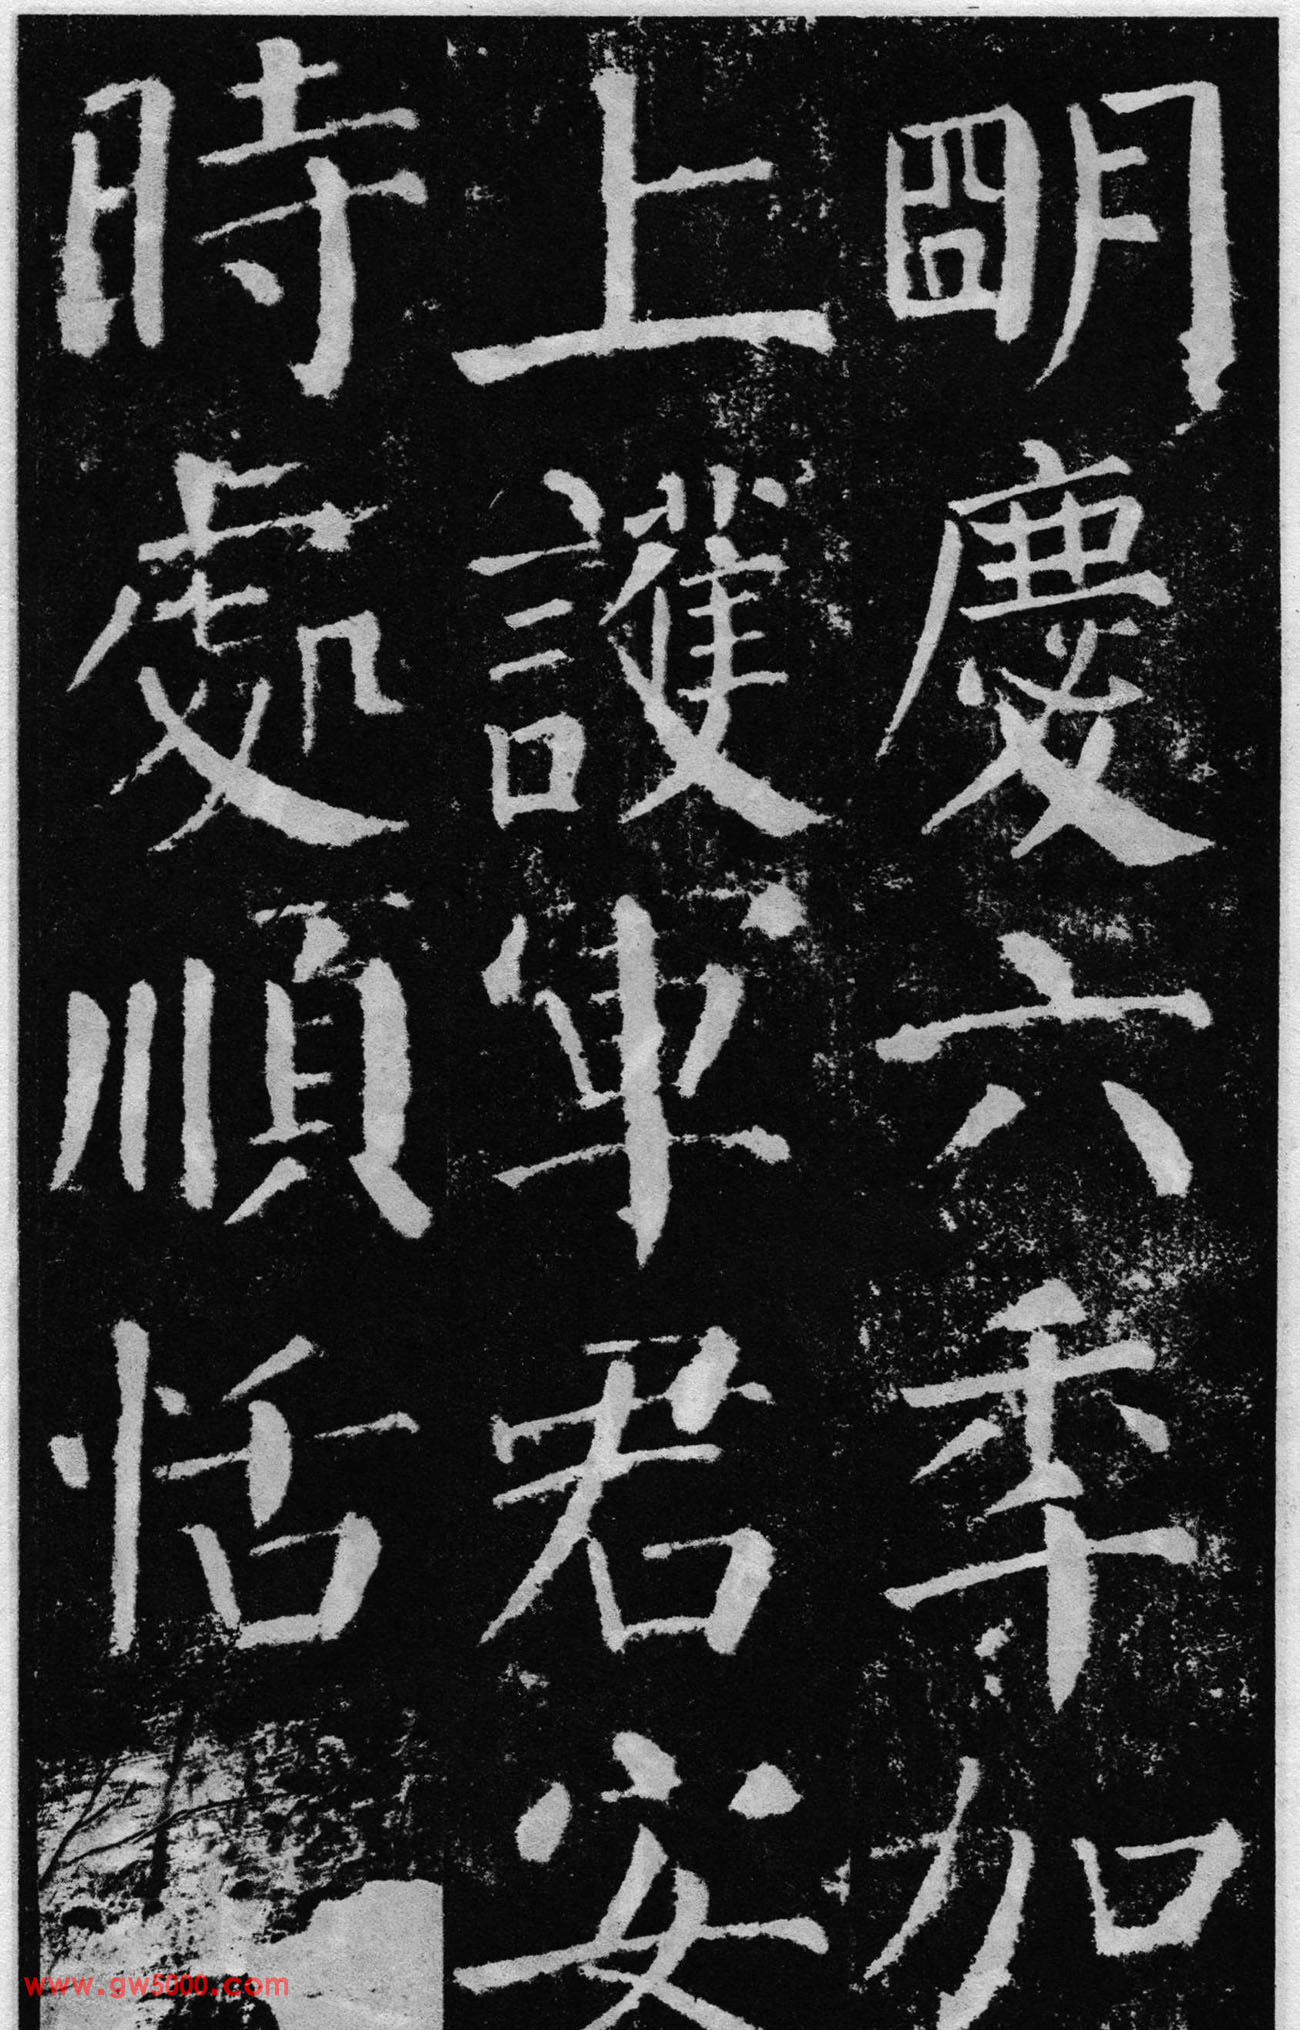 明慶六年加
上護軍君安
時處順恬
www.gw5000.com